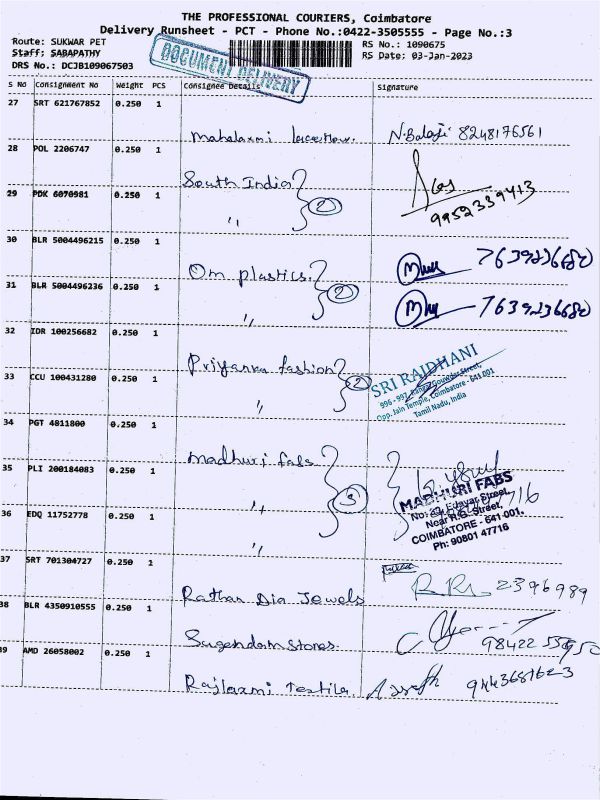 THE PROFESSIONAL COURIERS, Coimbatore
Delivery Runsheet - PCT - Phone No.:0422-3505555 - Page No.:3
Route: SUKWAR PET
RS No.: 1090675
Staff: SABAPATHY
RS Date: 03-Jan-2023
DRS No.: DCJB109067503
DOCUMENT DELIVERY
S No Consignment No Weight PCS Consignee Details Signature
27 SRT 621767852 0.250 1
Mahalaxmi N.Balaji 8248176561
28 POL 2206747 0.250 1
South India 2
9952339413
29 PDK 6070981 0.250 1
"
30 BLR 5004496215 0.250 1
Om plastics. 2 7639236680
31 BLR 5004496236 0.250 1
" 7639236680
32 IDR 100256682 0.250 1
Priyanka fashion 2
SRI RAJDHANI
996 - 997, Gounder Street,
Opp. Jain Temple, Coimbatore - 641 001
Tamil Nadu, India
33 CCU 100431280 0.250 1
"
34 PGT 4811800 0.250 1
Madhuri fabs 3
35 PLI 200184083 0.250 1
"
MADHURI FABS
Street,
Near H.B. Street,
COIMBATORE - 641 001.
Ph: 90801 47716
36 EDQ 11752778 0.250 1
"
37 SRT 701304727 0.250 1
Rathan Dia Jewels 2396989
38 BLR 4350910555 0.250 1
Sugandam Stores.
98422 55950
39 AMD 26058002 0.250 1
Rajlaxmi Textile